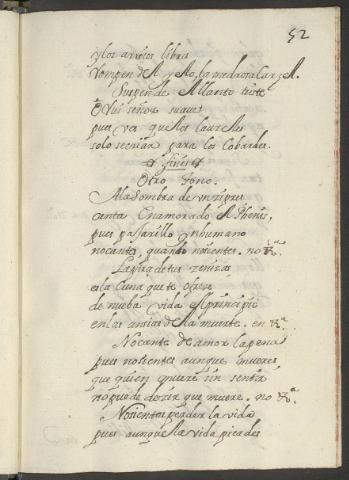 52
y los arneses libra
rompen del y yo, la medrosa
Suspende el llanto triste
O luis señor suave
pues ves que los laureles
solo se crian para los Cobardes.
finis
Otro Tono.
A la sombra de un cipres
canta Enamorado el Phenis,
pues pajarillo ynhumano
no cantes, quando no sientes. no &.ª
La pira de tus zenizas
es la Cuna que te ofreze
de nueba vida el principio
en las ansias de la muerte. en &.ª
No cante de amor la pena
pues no sientes aunque mueres
que quien muere sin sentir
no puede dezir que muere. no &.ª
No sientes perder la vida
pues aunque la vida pierdes